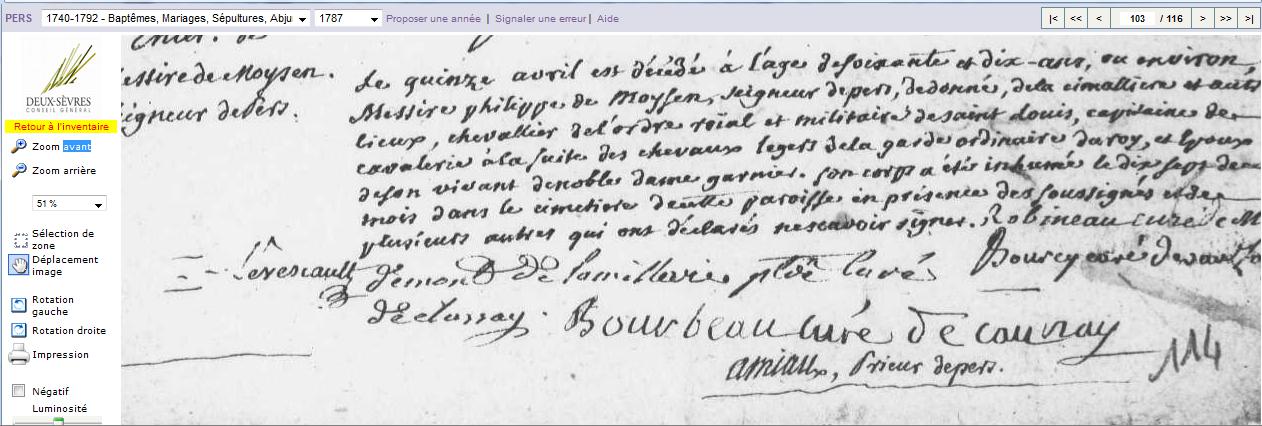 PERS 1740-1792 - Baptêmes, Mariages, Sépultures, Abju 1787 Proposer une année | Signaler une erreur | Aide |< << < 103 / 116 > >> >|
DEUX-SÈVRES
CONSEIL GÉNÉRAL
Retour à l'inventaire
Zoom avant
Zoom arrière
51 %
Sélection de
zone
Déplacement
image
Rotation
gauche
Rotation droite
Impression
Négatif
Luminosité
essire de Moysen.
eigneur de Pers.
Le quinze avril est décédé à l'age de soixante et dix-ans, ou environ,
Messire philippe de Moysen, seigneur de pers, de donné, de la cimalliere et autr
lieux, chevallier de l'ordre roïal et militaire de saint louis, capitaine de
cavalerie à la suite des chevaux legers de la garde ordinaire du roy, et Epoux
de son vivant de noble dame garnier. son corps a étés inhumé le dix sept de
mois dans le cimetiere de cette paroisse en présence des soussignés et de
plusieurs autres qui ont déclarés ne scavoir signer. Robineau curé de M
Levescault
Bourcy curé de
de clussay. Bourbeau curé de caunay
amiaux, Prieur de pers.
114